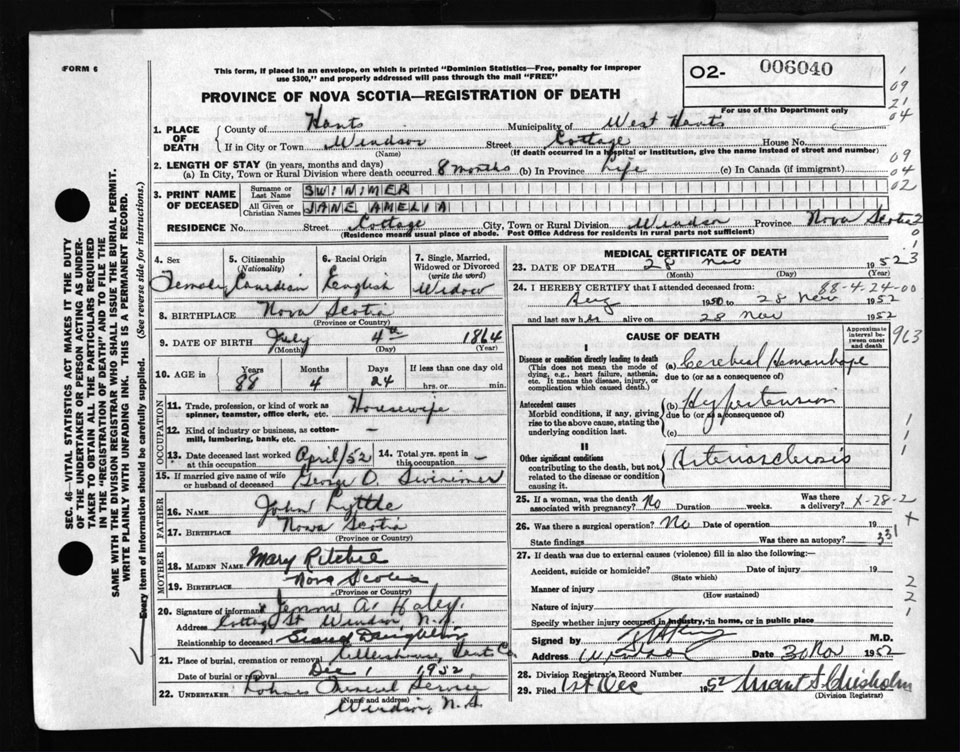 FORM 6
This form, if placed in an envelope, on which is printed "Dominion Statistics—Free, penalty for improper
use $300," and properly addressed will pass through the mail "FREE"
O2- 006040
PROVINCE OF NOVA SCOTIA—REGISTRATION OF DEATH
For use of the Department only
1. PLACE OF DEATH
County of Hants Municipality of West Hants
If in City or Town Windsor Street Cottage House No.
(Name) (If death occurred in a hospital or institution, give the name instead of street and number)
2. LENGTH OF STAY (in years, months and days)
(a) In City, Town or Rural Division where death occurred 8 months (b) In Province Life (c) In Canada (if immigrant)
3. PRINT NAME OF DECEASED
Surname or Last Name SWINIMER
All Given or Christian Names JANE AMELIA
RESIDENCE No. Street Cottage City, Town or Rural Division Windsor Province Nova Scotia
(Residence means usual place of abode. Post Office Address for residents in rural parts not sufficient)
4. Sex Female
5. Citizenship (Nationality) Canadian
6. Racial Origin English
7. Single, Married, Widowed or Divorced (write the word) Widow
8. BIRTHPLACE Nova Scotia
(Province or Country)
9. DATE OF BIRTH July 4th 1864
(Month) (Day) (Year)
10. AGE in Years 88 Months 4 Days 24 If less than one day hrs. or min.
OCCUPATION
11. Trade, profession or kind of work as spinner, teamster, office clerk, etc. Housewife
12. Kind of industry or business, as cotton-mill, lumbering, bank, etc. –
13. Date deceased last worked at this occupation April/52 14. Total yrs. spent in this occupation –
15. If married give name of wife or husband of deceased George O. Swinimer
FATHER
16. NAME John Lyttle
17. BIRTHPLACE Nova Scotia
(Province or Country)
MOTHER
18. MAIDEN NAME Mary Ritchie
19. BIRTHPLACE Nova Scotia
(Province or Country)
20. Signature of informant Jennie A. Haley.
Address Cottage St Windsor, N.S.
Relationship to deceased Grand Daughter
21. Place of burial, cremation or removal Hants Co
Date of burial or removal Dec 1, 1952
22. UNDERTAKER
(Name and address)
Windsor, N.S.
MEDICAL CERTIFICATE OF DEATH
23. DATE OF DEATH 28 Nov 1952
(Month) (Day)
24. I HEREBY CERTIFY that I attended deceased from: 88-4-24-00
Aug 1950 to 28 Nov 1952
and last saw her alive on 28 Nov 1952
CAUSE OF DEATH
Approximate interval between onset and death
I
Disease or condition directly leading to death
(This does not mean the mode of dying, e.g., heart failure, asthenia, etc. It means the disease, injury, or complication which caused death.)
(a) Cerebral Hemorrhage
due to (or as a consequence of)
Antecedent causes
Morbid conditions, if any, giving rise to the above cause, stating the underlying condition last.
(b) Hypertension
due to (or as a consequence of)
(c)
II
Other significant conditions
contributing to the death, but not related to the disease or condition causing it.
Arteriosclerosis
963
25. If a woman, was the death associated with pregnancy? No Duration weeks. Was there a delivery? X-28-2
26. Was there a surgical operation? No Date of operation 19
State findings Was there an autopsy?
27. If death was due to external causes (violence) fill in also the following:—
Accident, suicide or homicide? Date of injury 19
(State which)
Manner of injury
(How sustained)
Nature of injury
Specify whether injury occurred in industry, in home, or in public place
Signed by M.D.
Address Windsor Date 30 Nov 1952
28. Division Registrar's Record Number
29. Filed 1st Dec 1952 Chisholm
(Division Registrar)
SEC. 46—VITAL STATISTICS ACT MAKES IT THE DUTY
OF THE UNDERTAKER OR PERSON ACTING AS UNDER-
TAKER TO OBTAIN ALL THE PARTICULARS REQUIRED
IN THE "REGISTRATION OF DEATH" AND TO FILE THE
SAME WITH THE DIVISION REGISTRAR WHO SHALL ISSUE THE BURIAL PERMIT.
WRITE PLAINLY WITH UNFADING INK. THIS IS A PERMANENT RECORD.
Every item of information should be carefully supplied. (See reverse side for instructions.)